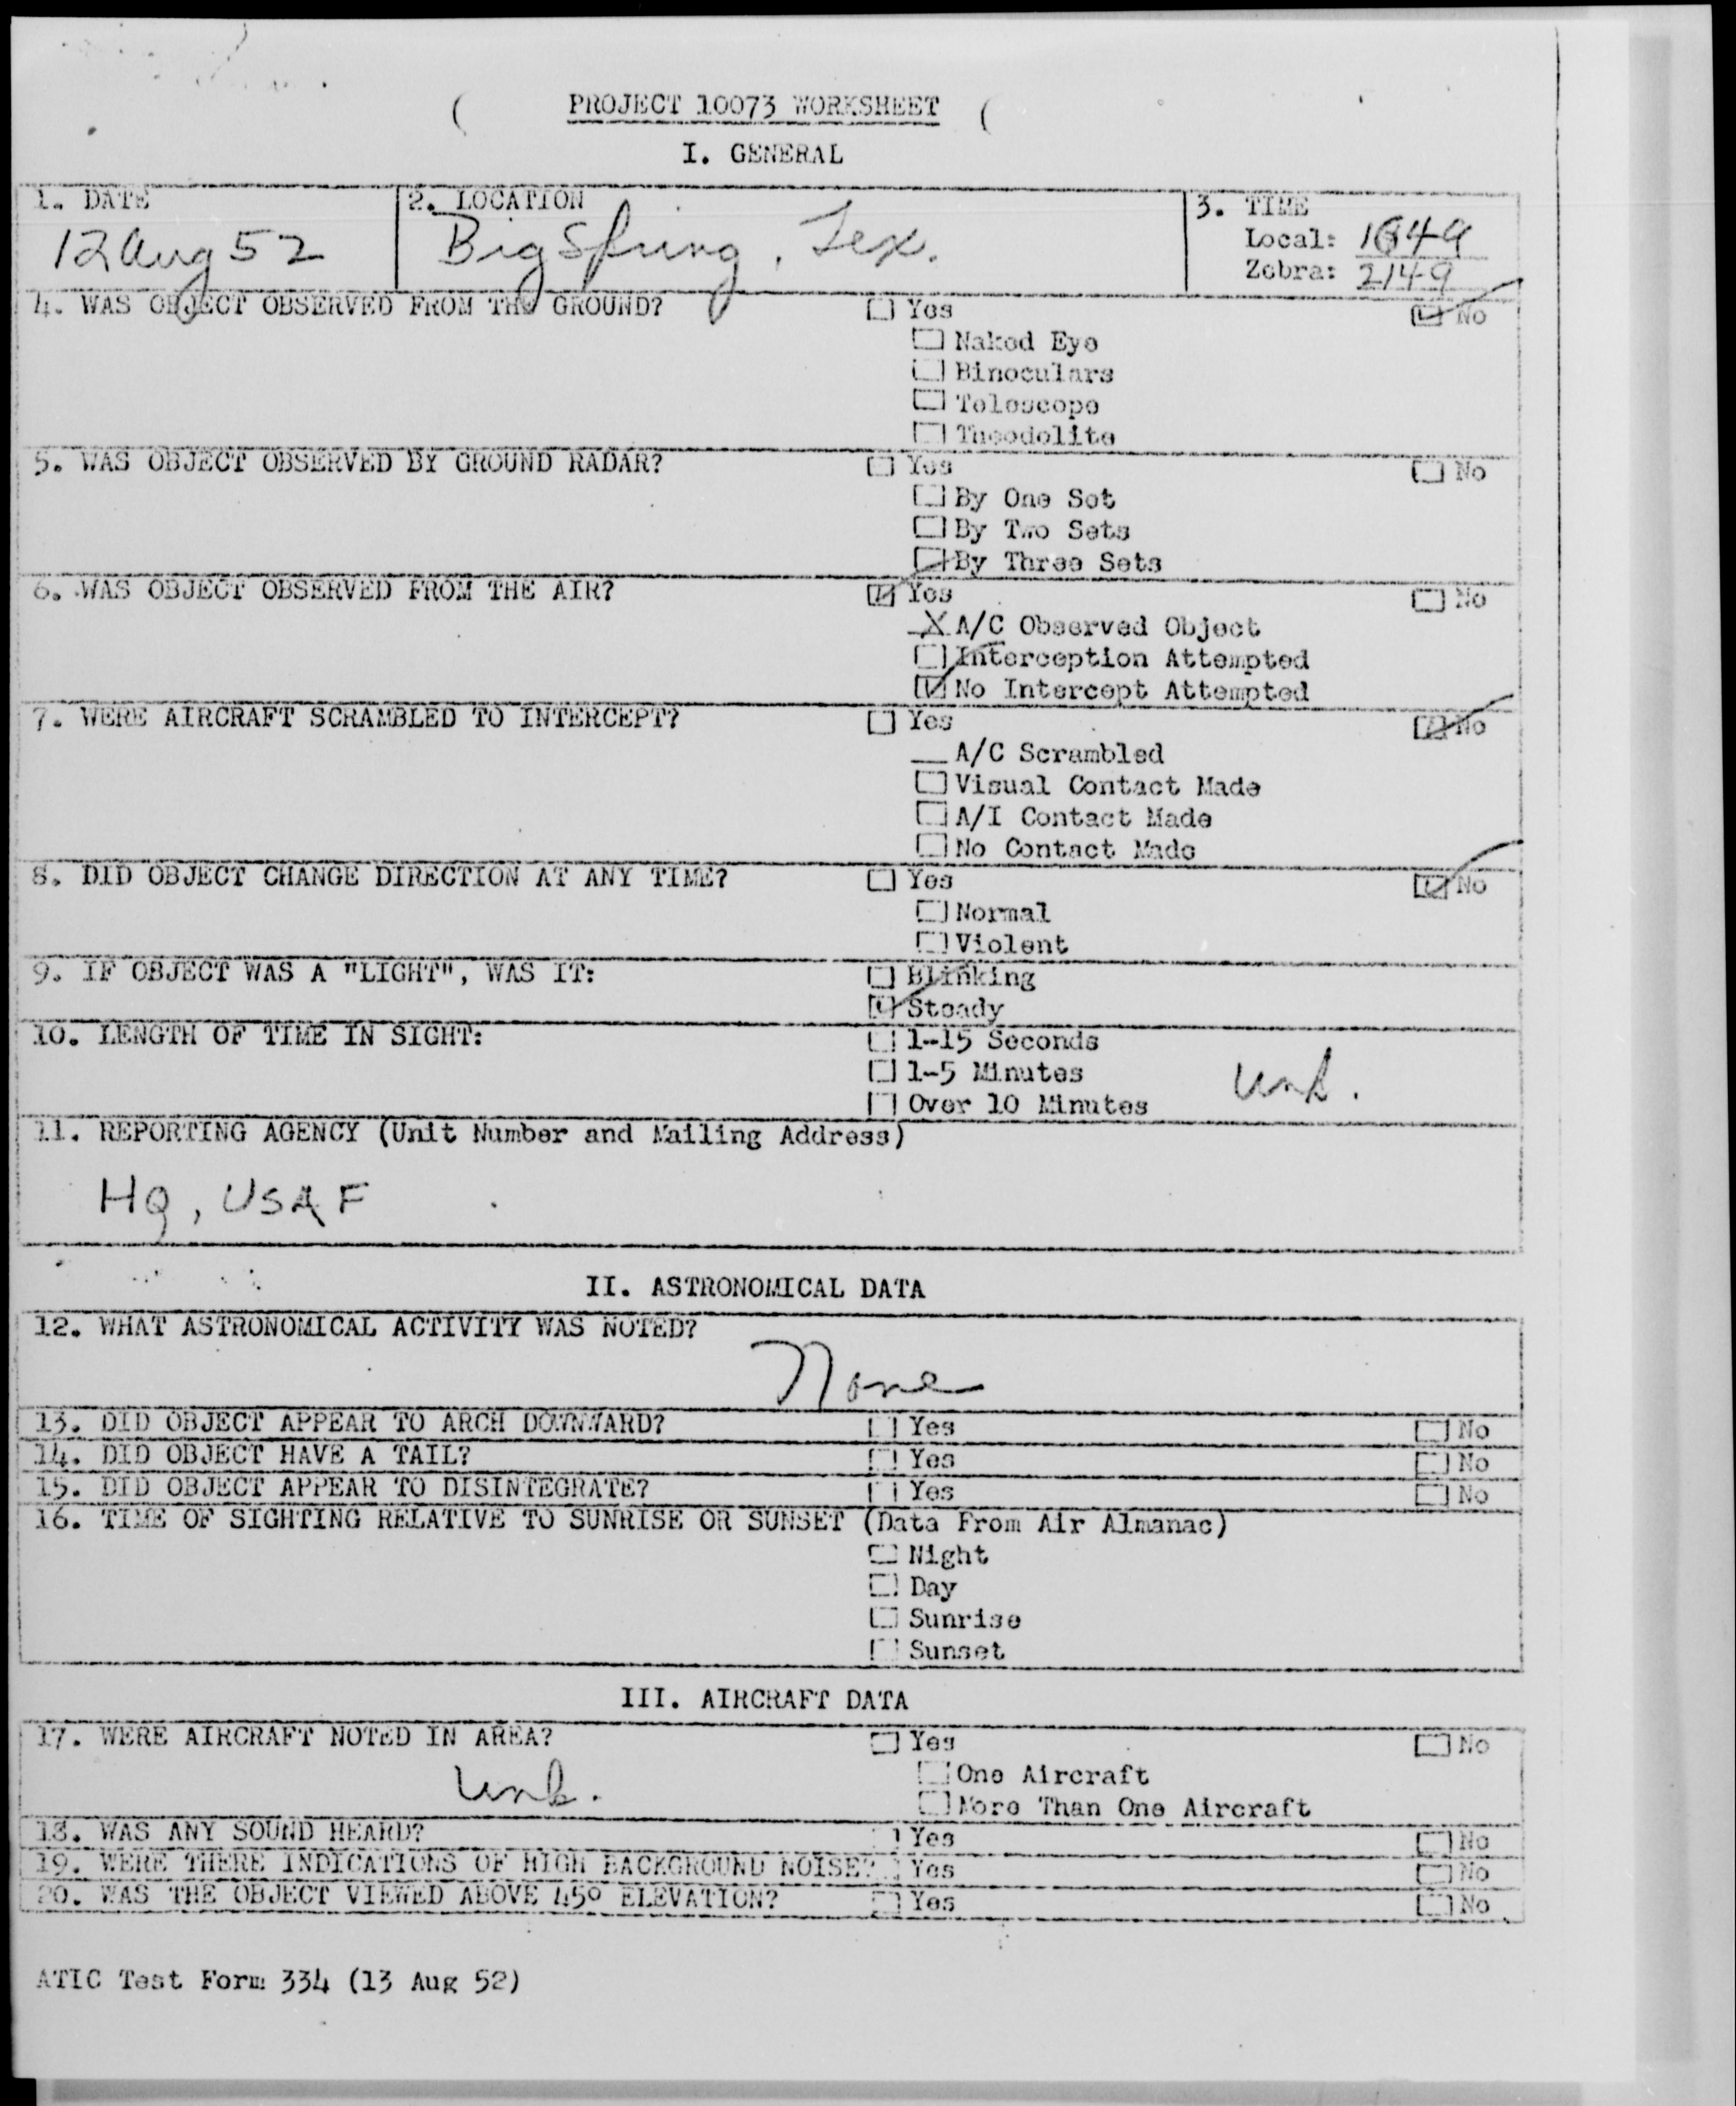 PROJECT 10073 WORKSHEET
I. GENERAL
1. DATE
12 Aug 52
2. LOCATION
Big Spring, Tex.
3. TIME
Local: 1549
Zebra: 2149
4. WAS OBJECT OBSERVED FROM THE GROUND? Yes No
Naked Eye
Binoculars
Telescope
Theodolite
5. WAS OBJECT OBSERVED BY GROUND RADAR? Yes No
By One Set
By Two Sets
By Three Sets
6. WAS OBJECT OBSERVED FROM THE AIR? Yes No
X A/C Observed Object
Interception Attempted
No Intercept Attempted
7. WERE AIRCRAFT SCRAMBLED TO INTERCEPT? Yes No
A/C Scrambled
Visual Contact Made
A/I Contact Made
No Contact Made
8. DID OBJECT CHANGE DIRECTION AT ANY TIME? Yes No
Normal
Violent
9. IF OBJECT WAS A "LIGHT", WAS IT: Blinking
Steady
10. LENGTH OF TIME IN SIGHT: 1-15 Seconds
1-5 Minutes Unk.
Over 10 Minutes
11. REPORTING AGENCY (Unit Number and Mailing Address)
HQ, USAF
II. ASTRONOMICAL DATA
12. WHAT ASTRONOMICAL ACTIVITY WAS NOTED?
None
13. DID OBJECT APPEAR TO ARCH DOWNWARD? Yes No
14. DID OBJECT HAVE A TAIL? Yes No
15. DID OBJECT APPEAR TO DISINTEGRATE? Yes No
16. TIME OF SIGHTING RELATIVE TO SUNRISE OR SUNSET (Data From Air Almanac)
Night
Day
Sunrise
Sunset
III. AIRCRAFT DATA
17. WERE AIRCRAFT NOTED IN AREA? Yes No
Unk. One Aircraft
More Than One Aircraft
18. WAS ANY SOUND HEARD? Yes No
19. WERE THERE INDICATIONS OF HIGH BACKGROUND NOISE? Yes No
20. WAS THE OBJECT VIEWED ABOVE 45° ELEVATION? Yes No
ATIC Test Form 334 (13 Aug 52)